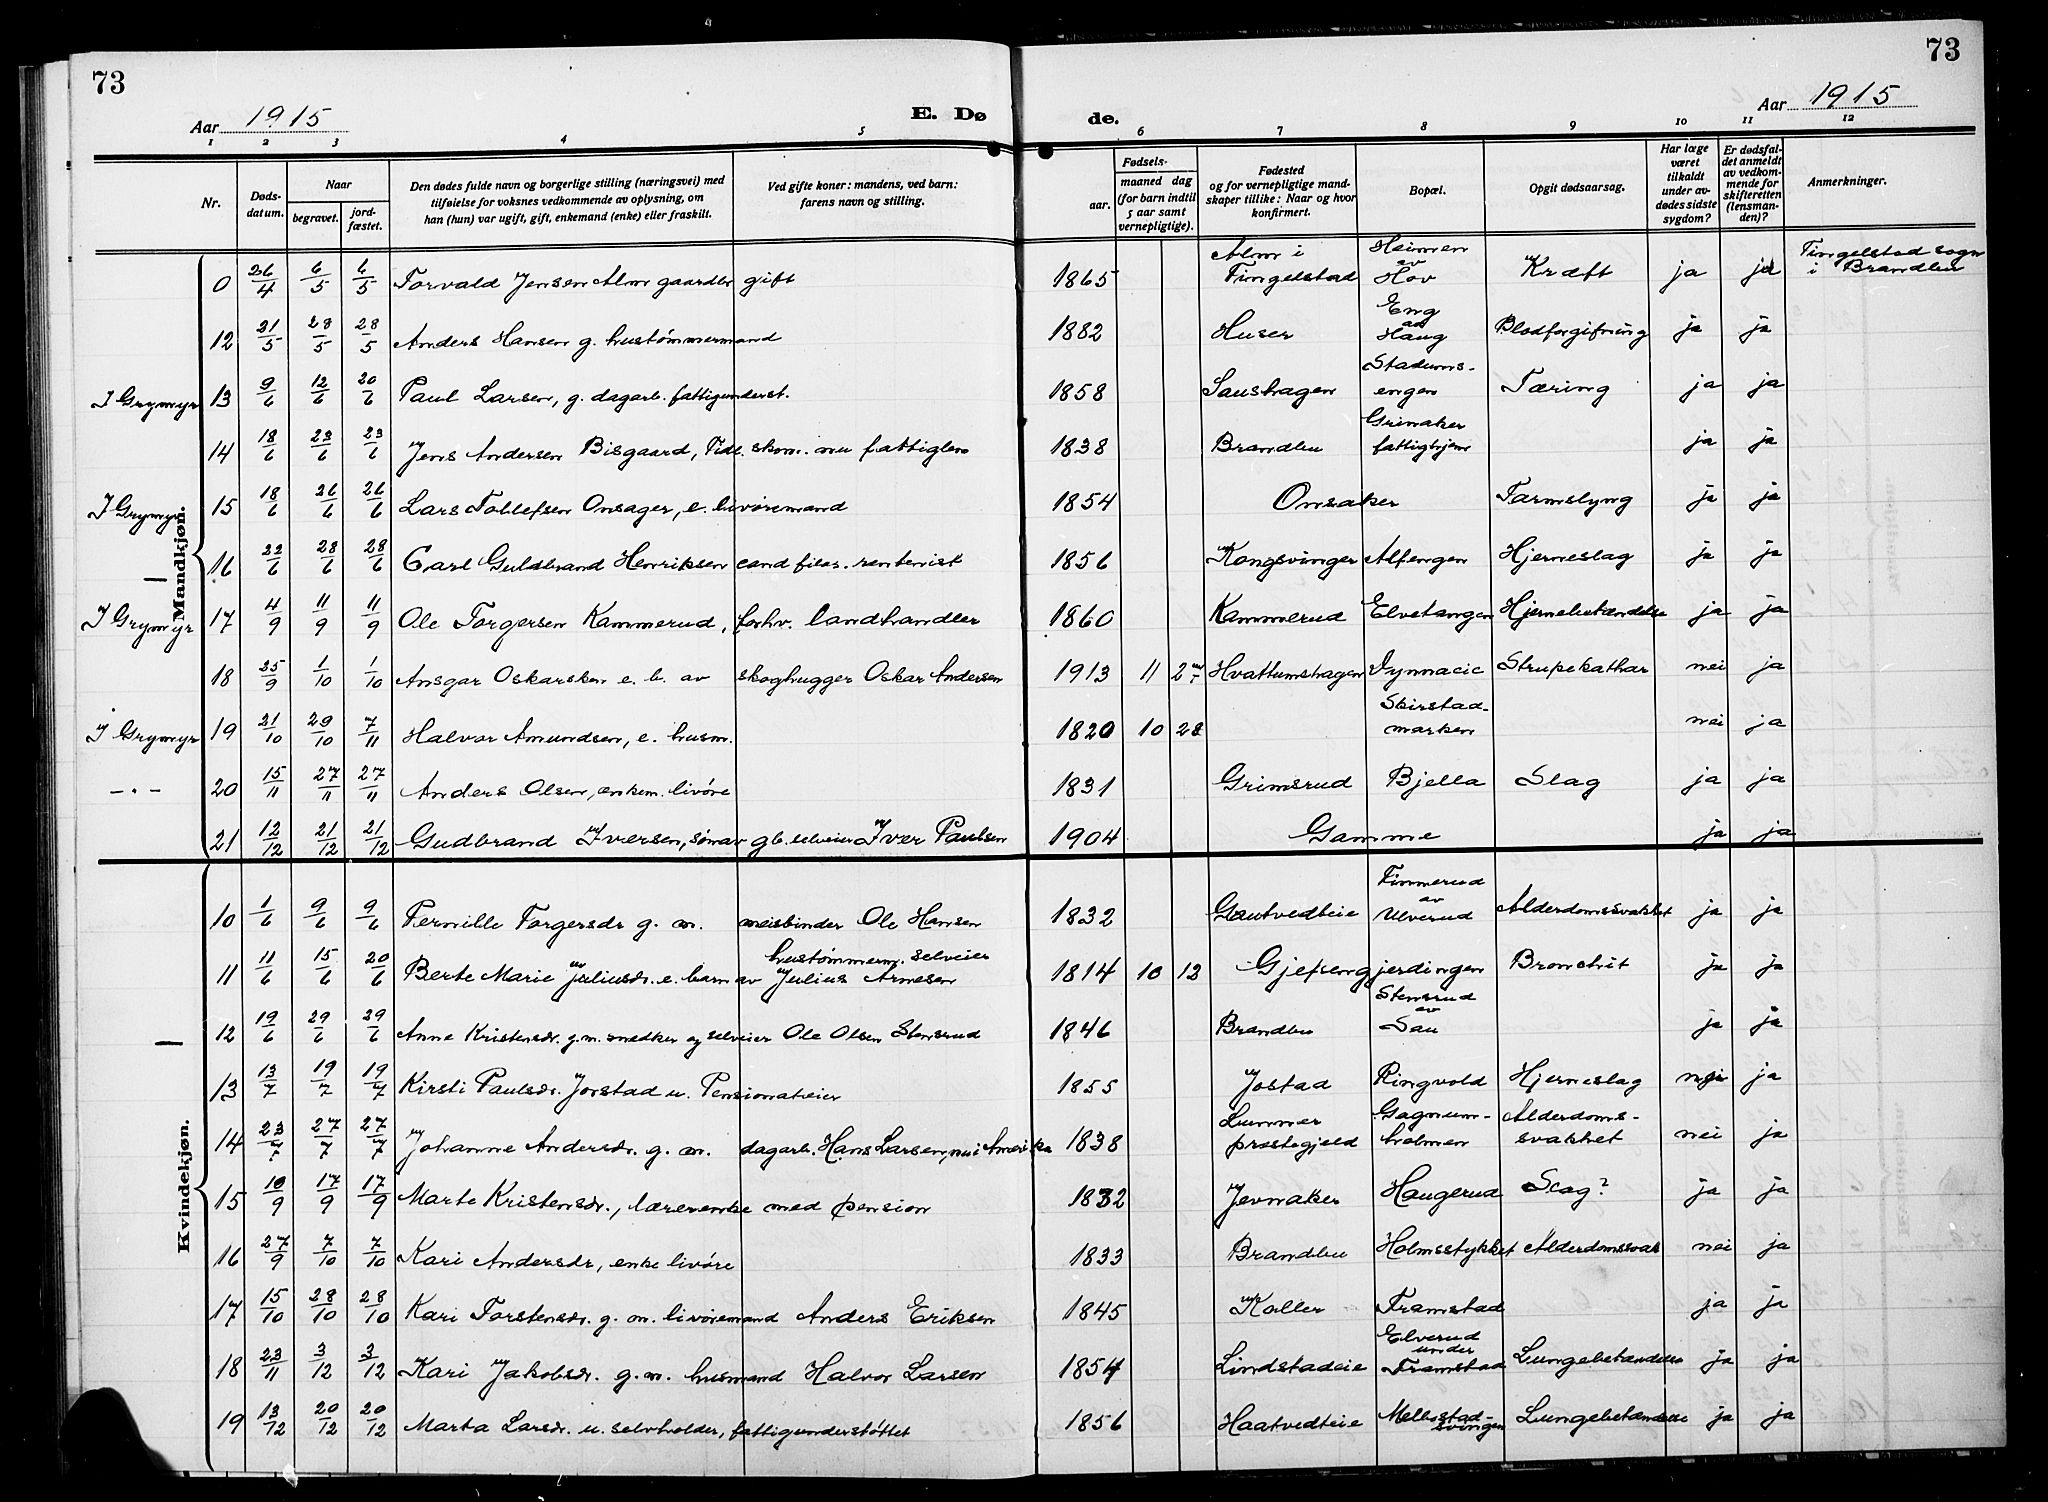 73
73
Aar 1915
E. Dø
de.
Aar 1915
1 2 3 4 5 6 7 8 9 10 11 12
Nr.
Døds-
datum.
Naar
begravet.
jord-
fæstet.
Den dødes fulde navn og borgerlige stilling (næringsvei) med
tilføielse for voksnes vedkommende av oplysning, om
han (hun) var ugift, gift, enkemand (enke) eller fraskilt.
Ved gifte koner: mandens, ved barn:
farens navn og stilling.
Fødsels-
aar.
maaned dag
(for barn indtil
5 aar samt
vernepligtige).
Fødested
og for vernepligtige mand-
skaper tillike: Naar og hvor
konfirmert.
Bopæl.
Opgit dødsaarsag.
Har læge
været
tilkaldt
under av-
dødes sidste
sygdom?
Er dødsfal-
det anmeldt
av vedkom-
mende for
skifteretten
(lensman-
den)?
Anmerkninger.
Mandkjøn.
0 26/4 6/5 6/5 Torvald Jensen Alm gaardbr gift 1865 Alm i Tingelstad Heimen av Hov Kræft ja ja Tingelstad sogn i Brandbu
12 21/5 28/5 28/5 Anders Hansen g. hustømmermand 1882 Huser Eng av Haug Blodforgiftning ja ja
I Grymyr 13 9/6 12/6 20/6 Paul Larsen, g. dagarb. fattigunderst. 1858 Saushagen Stadums-engen Tæring ja ja
14 18/6 23/6 23/6 Jens Andersen Bisgaard, Tidl. skom. nu fattiglem 1838 Brandbu Grinaker fattighjem ja ja
I Grymyr 15 18/6 26/6 26/6 Lars Tollefsen Onsager, e. livøremand 1854 Onsaker Tarmslyng ja ja
— 16 22/6 28/6 28/6 Carl Guldbrand Henriksen cand filos. rentenist 1856 Kongsvinger Alfengen Hjerneslag ja ja
I Grymyr 17 4/9 11/9 11/9 Ole Torgersen Kammerud, forhv. landhandler 1860 Kammerud Elvetangen Hjernebetændelse ja ja
18 25/9 1/10 1/10 Ansgar Oskarsken e. b. av skoghugger Oskar Andersen 1913 11 2 Hvattumshagen Strupekathar nei ja
I Grymyr 19 21/10 29/10 7/11 Halvor Amundsen, e. husm. 1820 10 28 Skirstad-marken nei ja
-"- 20 15/11 27/11 27/11 Anders Olsen, enkem. livøre 1831 Grimsrud Bjella Slag ja ja
21 12/12 21/12 21/12 Gudbrand Iversen, søn av gb. selveier Iver Paulsen 1904 Gamme ja ja
Kvindekjøn.
10 1/6 9/6 9/6 Pernille Torgersdr g. m. meisbinder Ole Hansen 1832 Gautvedteie Finnerud av Ulverud Alderdomssvakhet ja ja
11 11/6 15/6 20/6 Berte Marie Juliusdr. e. barn av hustømmerm. selveier Julius Arnesen 1814 10 12 Gjefsengjerdingen Bronchit ja ja
— 12 19/6 29/6 29/6 Anne Kristensdr. g. m. snedker og selveier Ole Olsen Stensrud 1846 Brandbu Stensrud av Sau ja ja
13 13/7 19/7 19/7 Kirsti Paulsdr. Jorstad u. Pensionatieier 1855 Jostad Ringvold Hjerneslag nei ja
14 23/7 27/7 27/7 Johanne Andersdr. g. m. dagarb. Hans Larsen, nu i Amerika 1838 Lunner prestegjeld Gagnum-holmen Alderdoms-svakhet nei ja
15 10/9 17/9 17/9 Marte Kristensdr., lærerenke med pension 1832 Jevnaker Haugerud Slag? ja ja
16 27/9 7/10 7/10 Kari Andersdr, enke livøre 1833 Brandbu Holmsstykket Alderdomssvak nei ja
17 15/10 28/10 28/10 Kari Torstensdr. g. m. livøremand Anders Eriksen 1845 Koller Framstad ja ja
18 23/11 3/12 3/12 Kari Jakobsdr. g. m. husmand Halvor Larsen 1854 Lindstadeie Elverud under Framstad Lungebetændelse ja ja
19 13/12 20/12 20/12 Marta Larsdr. u. selvholder, fattigunderstøttet 1856 Haatvedteie Mellostad-svingen Lungebetændelse ja ja